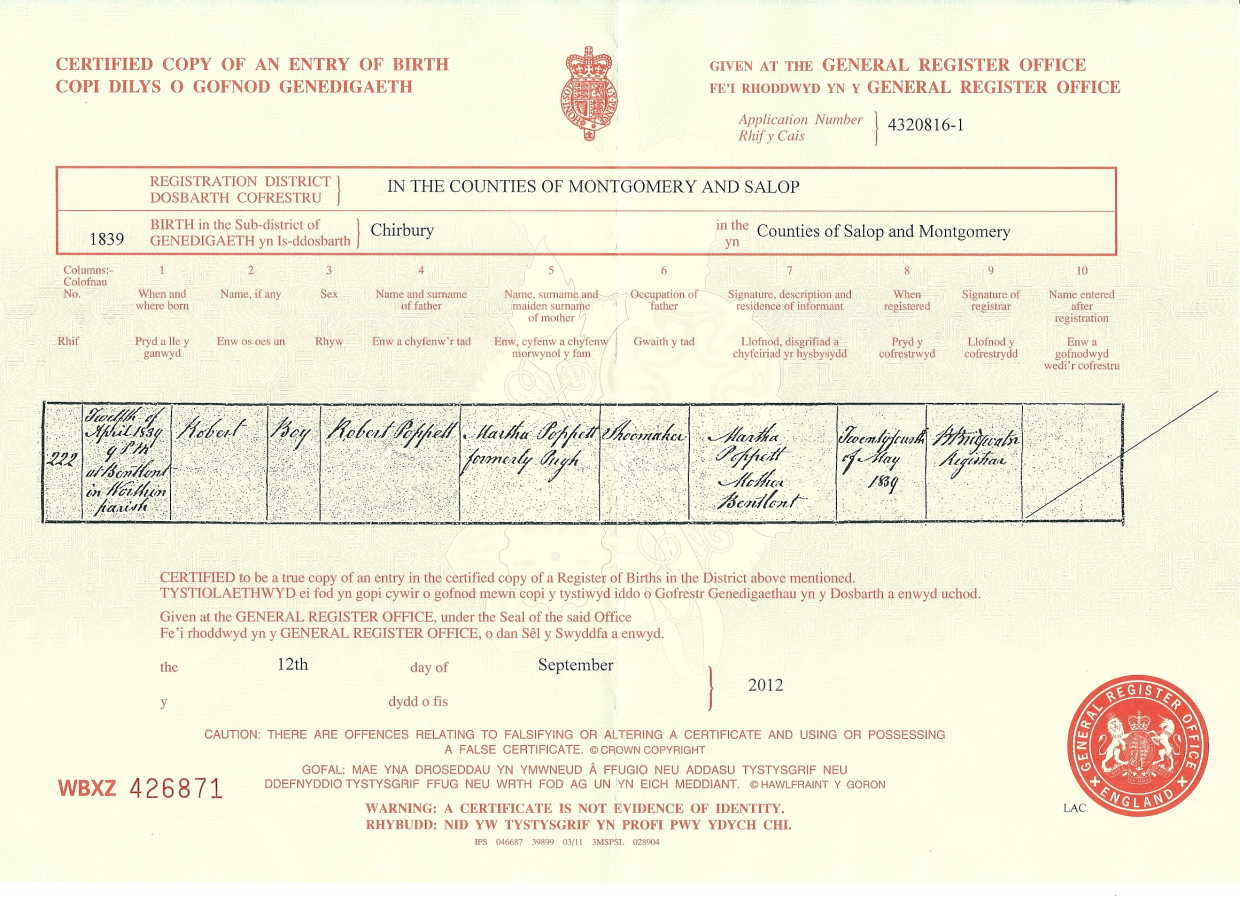 CERTIFIED COPY OF AN ENTRY OF BIRTH
COPI DILYS O GOFNOD GENEDIGAETH
GIVEN AT THE GENERAL REGISTER OFFICE
FE'I RHODDWYD YN Y GENERAL REGISTER OFFICE
Application Number
Rhif y Cais
4320816-1
REGISTRATION DISTRICT
DOSBARTH COFRESTRU
IN THE COUNTIES OF MONTGOMERY AND SALOP
1839
BIRTH in the Sub-district of
GENEDIGAETH yn Is-ddosbarth
Chirbury
in the
yn
Counties of Salop and Montgomery
Columns:- 1 2 3 4 5 6 7 8 9 10
Colofnau
No.
When and
where born
Name, if any
Sex
Name and surname
of father
Name, surname and
maiden surname
of mother
Occupation of
father
Signature, description and
residence of informant
When
registered
Signature of
registrar
Name entered
after
registration
Rhif
Pryd a lle y
ganwyd
Enw os oes un
Rhyw
Enw a chyfenw'r tad
Enw, cyfenw a chyfenw
morwynol y fam
Gwaith y tad
Llofnod, disgrifiad a
chyfeiriad yr hysbysydd
Pryd y
cofrestrwyd
Llofnod y
cofrestrydd
Enw a
gofnodwyd
wedi'r cofrestru
222
Twelfth of
April 1839
9 P M
at Bentlont
in Worthen
parish
Robert
Boy
Robert Poppett
Martha Poppett
formerly Pugh
Shoemaker
Martha
Poppett
Mother
Bentlont
Twentyfourth
of May
1839
Registrar
CERTIFIED to be a true copy of an entry in the certified copy of a Register of Births in the District above mentioned.
TYSTIOLAETHWYD ei fod yn gopi cywir o gofnod mewn copi y tystiwyd iddo o Gofrestr Genedigaethau yn y Dosbarth a enwyd uchod.
Given at the GENERAL REGISTER OFFICE, under the Seal of the said Office
Fe'i rhoddwyd yn y GENERAL REGISTER OFFICE, o dan Sêl y Swyddfa a enwyd.
the 12th day of September
y dydd o fis
2012
CAUTION: THERE ARE OFFENCES RELATING TO FALSIFYING OR ALTERING A CERTIFICATE AND USING OR POSSESSING
A FALSE CERTIFICATE. © CROWN COPYRIGHT
GOFAL: MAE YNA DROSEDDAU YN YMWNEUD Â FFUGIO NEU ADDASU TYSTYSGRIF NEU
DDEFNYDDIO TYSTYSGRIF FFUG NEU WRTH FOD AG UN YN EICH MEDDIANT. © HAWLFRAINT Y GORON
WARNING: A CERTIFICATE IS NOT EVIDENCE OF IDENTITY.
RHYBUDD: NID YW TYSTYSGRIF YN PROFI PWY YDYCH CHI.
IPS 046687 39899 03/11 3MSPSL 028904
WBXZ 426871
GENERAL REGISTER OFFICE
ENGLAND
LAC